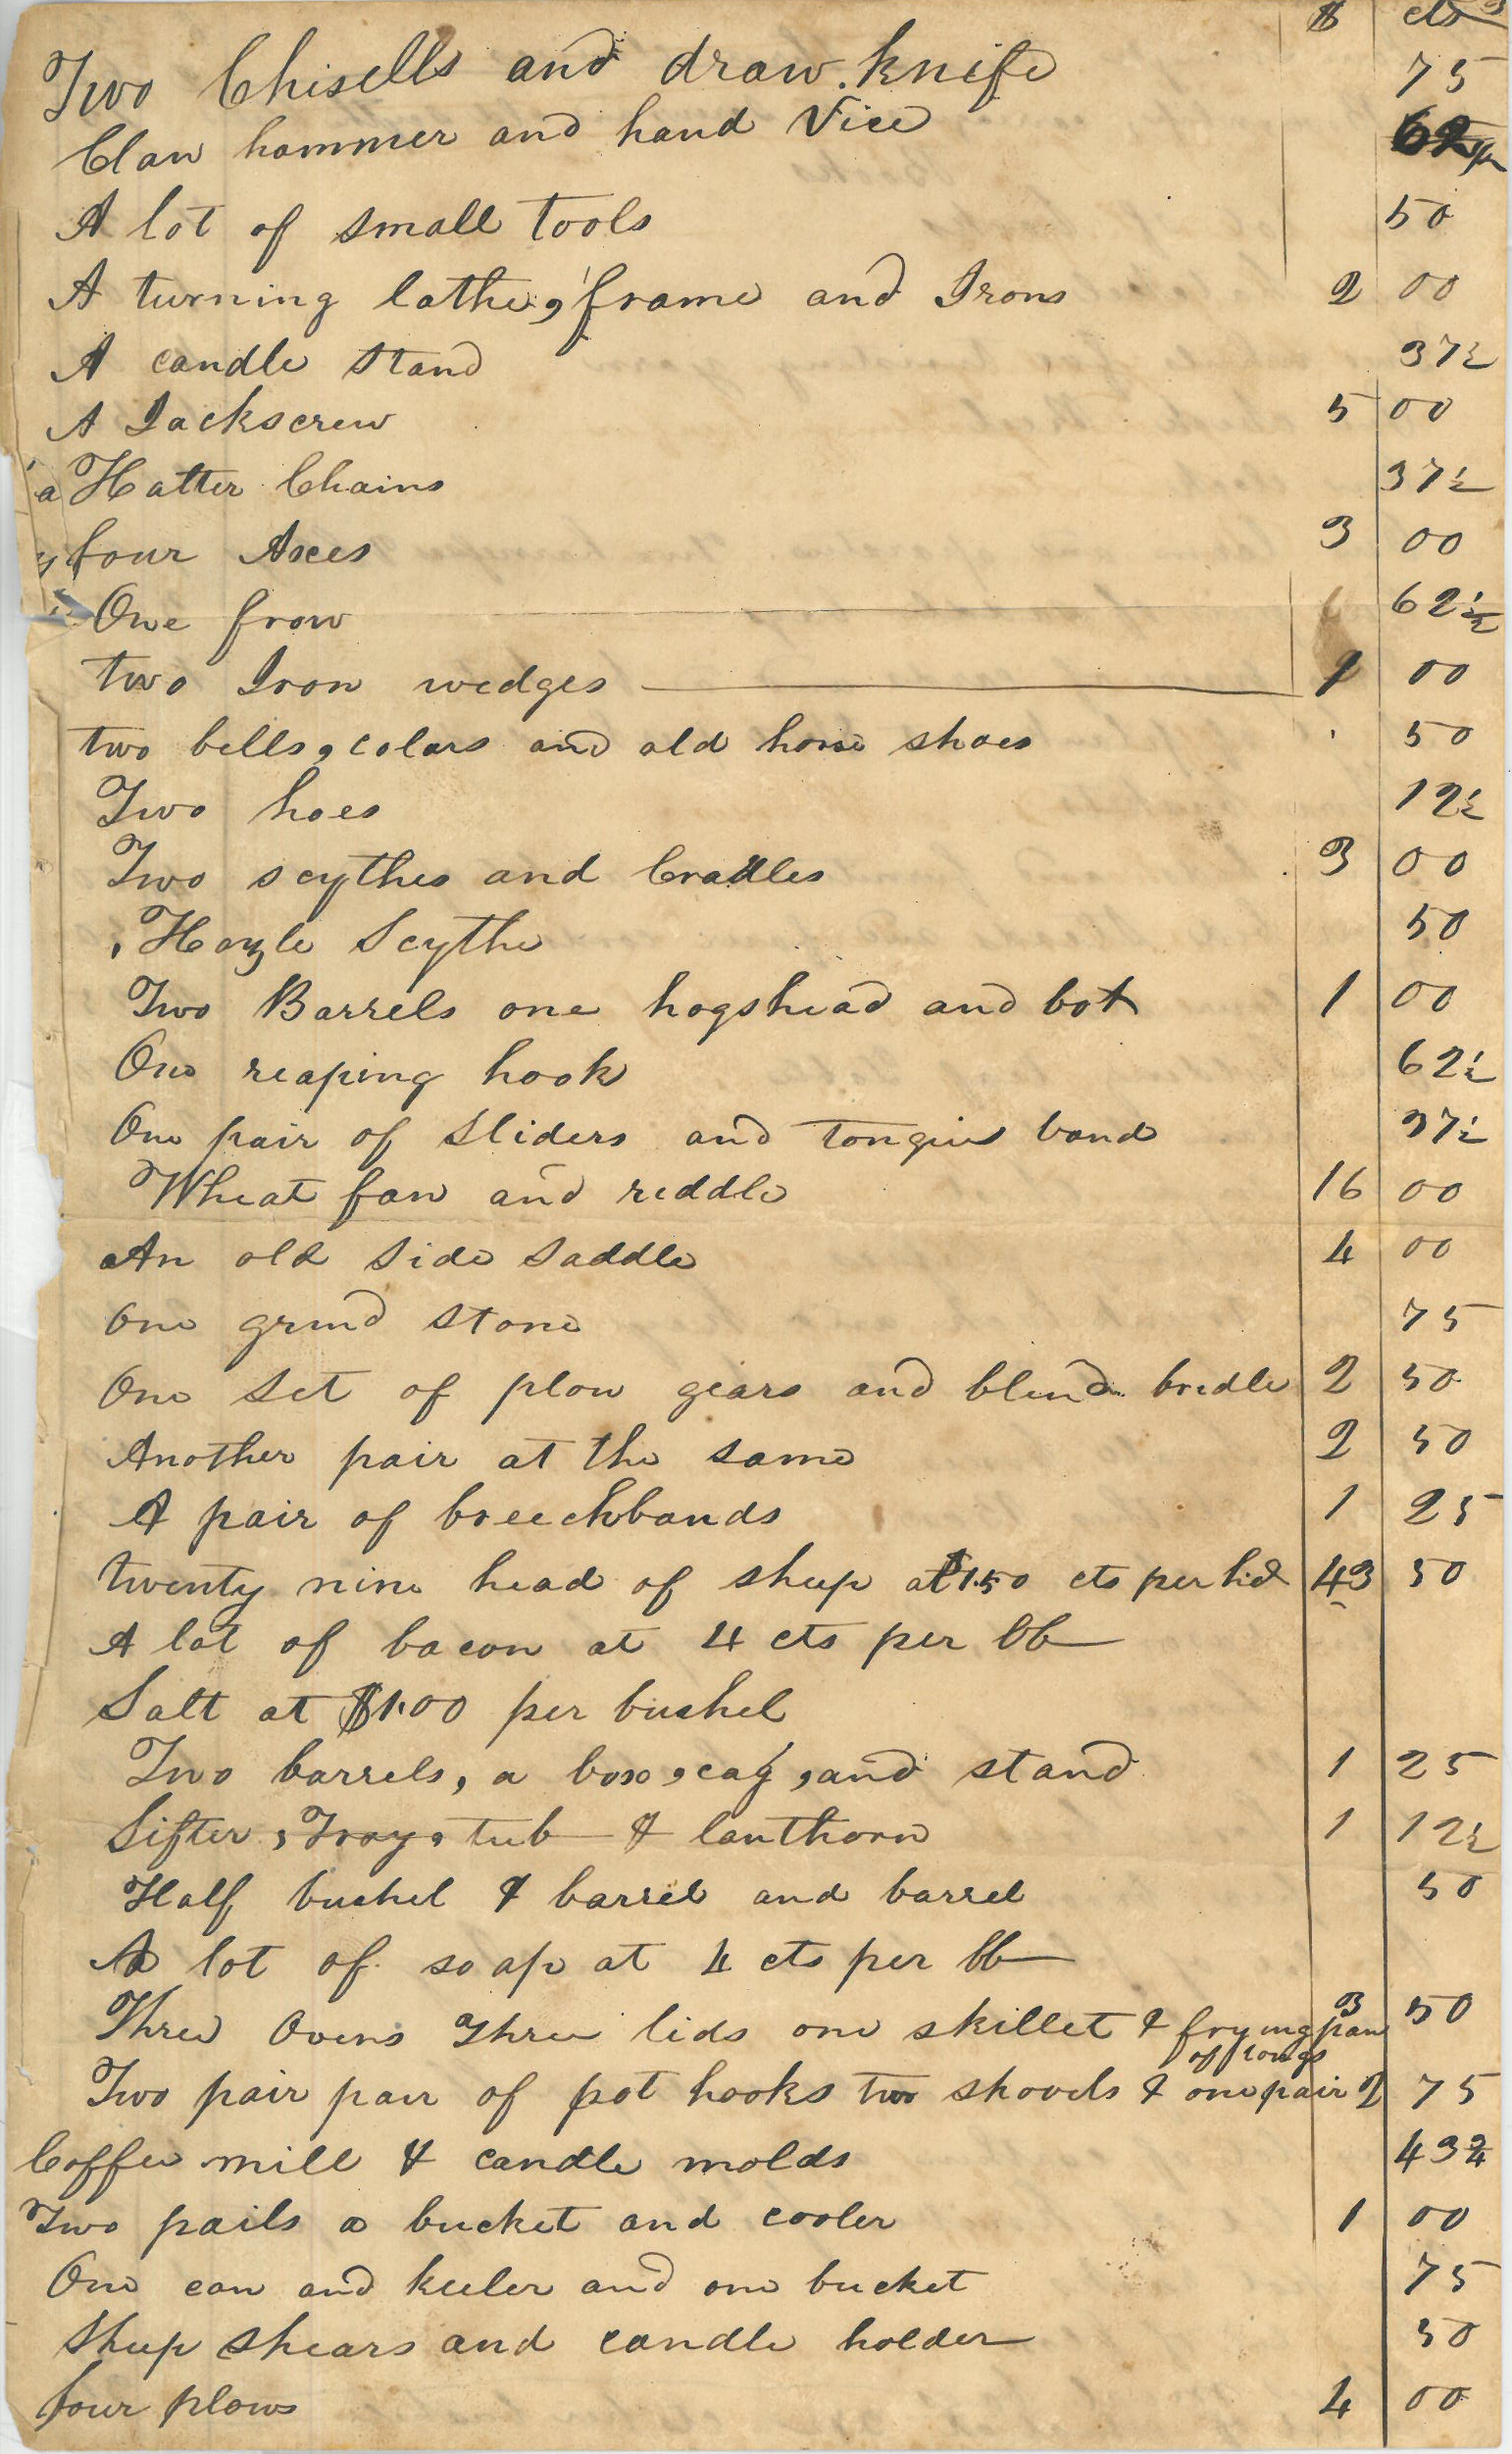 $ cts
Two Chisells and draw knife 75
Claw hammer and hand Vice 62½
A lot of small tools 50
A turning lathe, frame and Irons 2 00
A candle stand 37½
A Jackscrew 5 00
a Halter Chains 37½
four Axes 3 00
One frow 62½
two Iron wedges 1 00
two bells, colars and old horse shoes 50
Two hoes 12½
Two scythes and Cradles 3 00
Scythe 50
Two Barrels one hogshead and box 1 00
One reaping hook 62½
One pair of Sliders and tongue band 37½
Wheat fan and riddle 16 00
An old side saddle 4 00
One grind stone 75
One set of plow gears and blind bridle 2 50
Another pair at the same 2 50
A pair of breechbands 1 25
twenty nine head of sheep at $1.50 cts per hed 43 50
A lot of bacon at 4 cts per lb
Salt at $1.00 per bushel
Two barrels, a box, cag, and stand 1 25
Sifter, Tray, tub & lanthorn 1 12½
Half bushel & barrel and barrel 50
A lot of soap at 4 cts per lb
Three Ovens three lids one skillet & frying pan 3 50
Two pair pair of pot hooks two shovels & one pair of tongs 2 75
Coffee mill & candle molds 43¾
Two pails a bucket and cooler 1 00
One can and keeler and one bucket 75
Sheep shears and candle holder 50
four plows 4 00